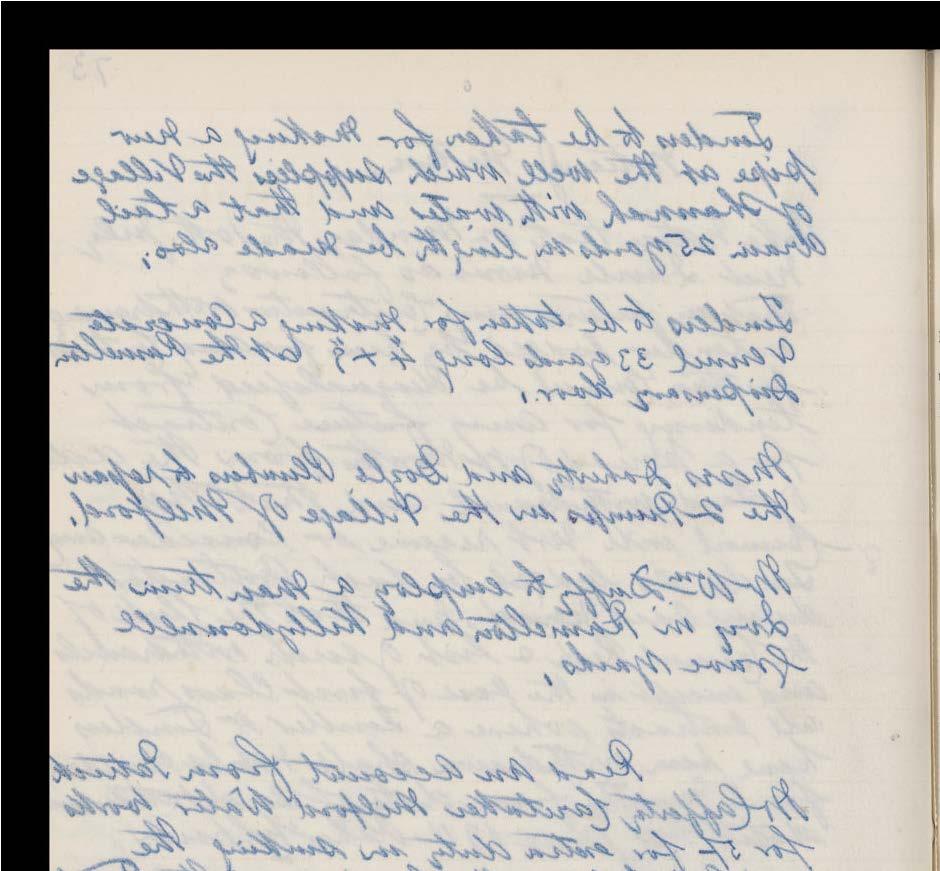 73
Tenders to be taken for Making a new
pipe at the well which supplies the Village
of Shannagh with water and that a tail
drain 25 yards in length be made also.
Tenders to be taken for Making a Concrete
Vennel 33 yards long 4 x 3 at the Ramelton
Dispensary door.
Messrs Doherty and Boyle Plumbers to repair
the 2 Pumps in the Village of Milford.
Mr Wm Duffy to employ a Man trim the
Ivy in Ramelton and Killydonnell
Grave Yards.
Read an Account from Patrick
McCafferty Caretaker Milford Water Works
for 5/- for extra duty in sinking the